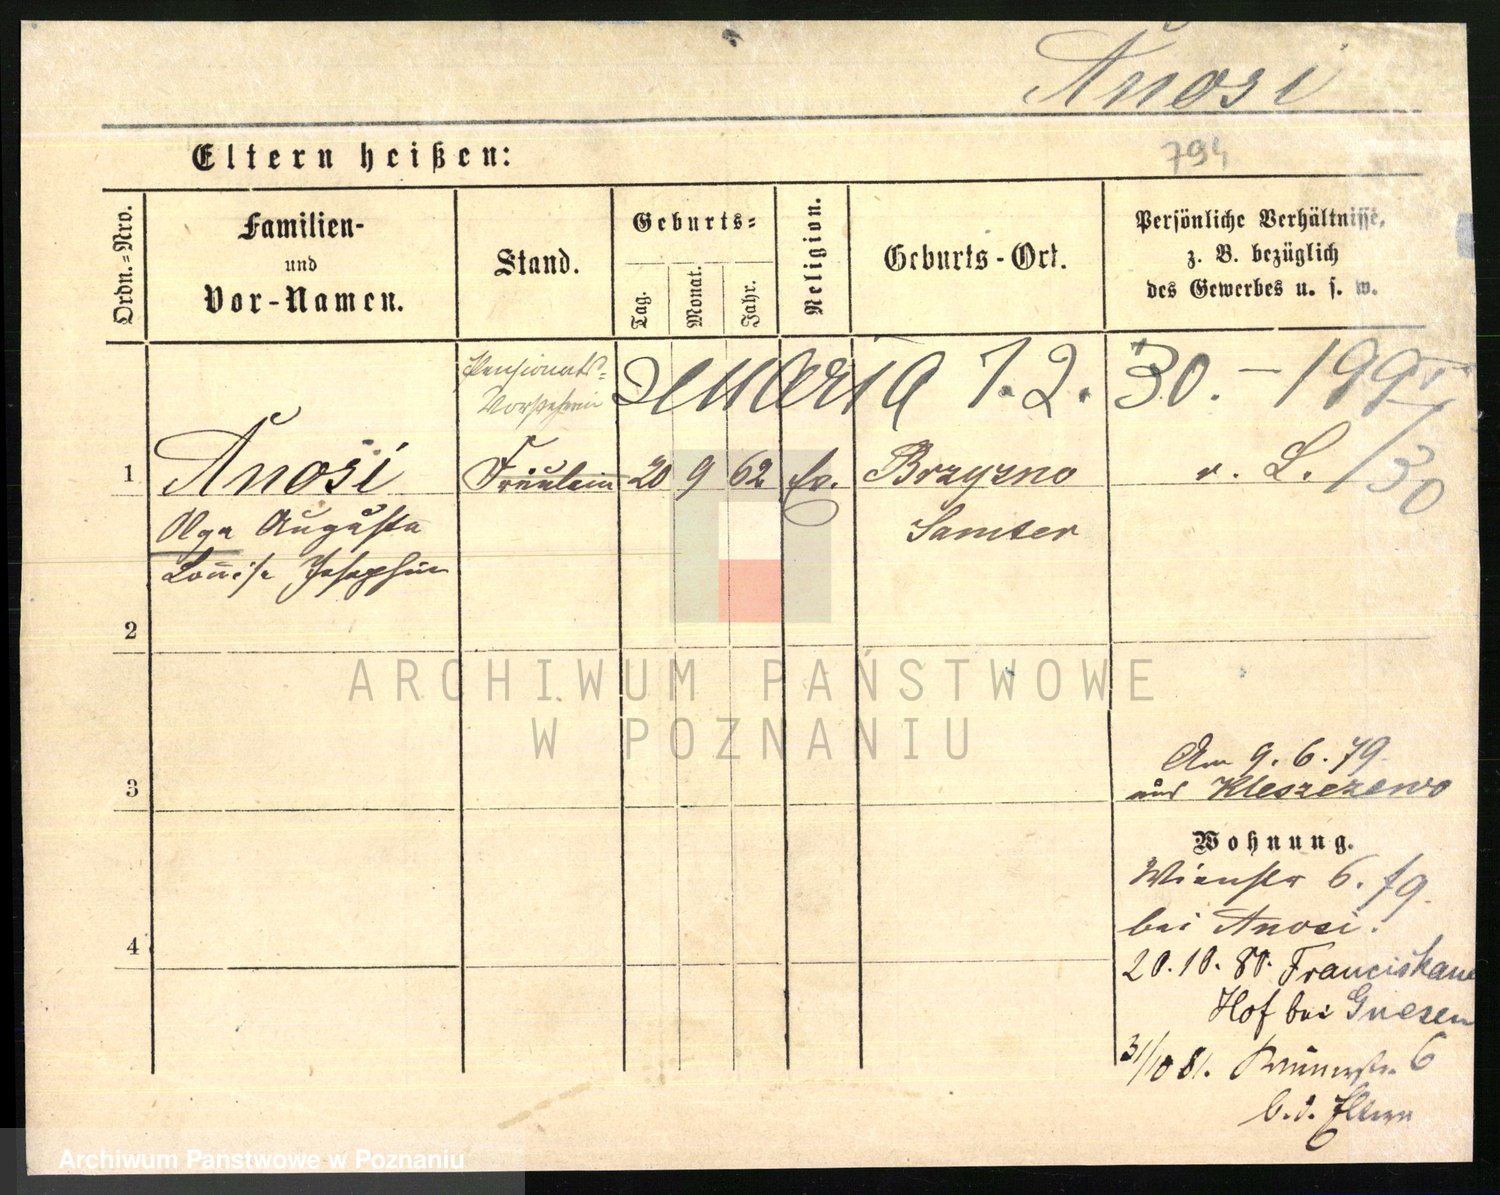 Anosi
Eltern heißen:
794
Ordn.=Nro.
Familien-
und
Vor-Namen.
Stand.
Geburts=
Tag.
Monat.
Jahr.
Religion.
Geburts-Ort.
Persönliche Verhältnisse,
z. B. bezüglich
des Gewerbes u. s. w.
Pensionats=
Vorsteherin
1. 2. 30. -
1
Anosi
Fräulein
20
9
62
Brzyzno
v. L.
Olga Augusta
Samter
Louise Josephine
2
Am 9. 6. 79.
aus Kleszczewo
3
Wohnung.
6. 79.
bei Anosi.
4
20. 10. 80. Franciskane
Hof bei Gnesen
31/10 81. 6
b. d. Eltern
ARCHIWUM PAŃSTWOWE
W POZNANIU
Archiwum Państwowe w Poznaniu